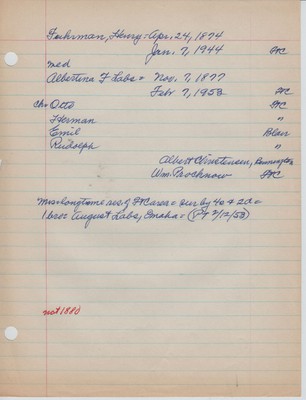 Fuhrman, Henry = Apr. 24, 1874
Jan. 7, 1944 FtC
med
Albertina F Labs = Nov. 7, 1877
Feb 7, 1953 FtC
Ch = Otto FtC
Herman "
Emil Blair
Rudolph "
Albert Christensen, Bennington
Wm. Prochnow FtC
Mrs = longtime res. of FtC area = sur by 4s & 2d =
1 bro = August Labs, Omaha = (PT 2/12/53)
not 1880